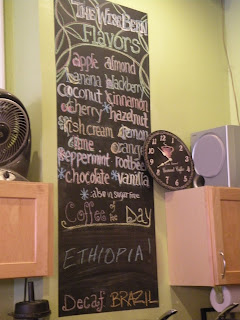 The Wise Bean
Flavors
apple almond
banana blackberry
coconut cinnamon
cherry * hazelnut
*irish cream lemon
lime orange
peppermint rootbeer
*chocolate *vanilla
*also in sugar free
Coffee of the Day
ETHIOPIA!
Decaf BRAZIL